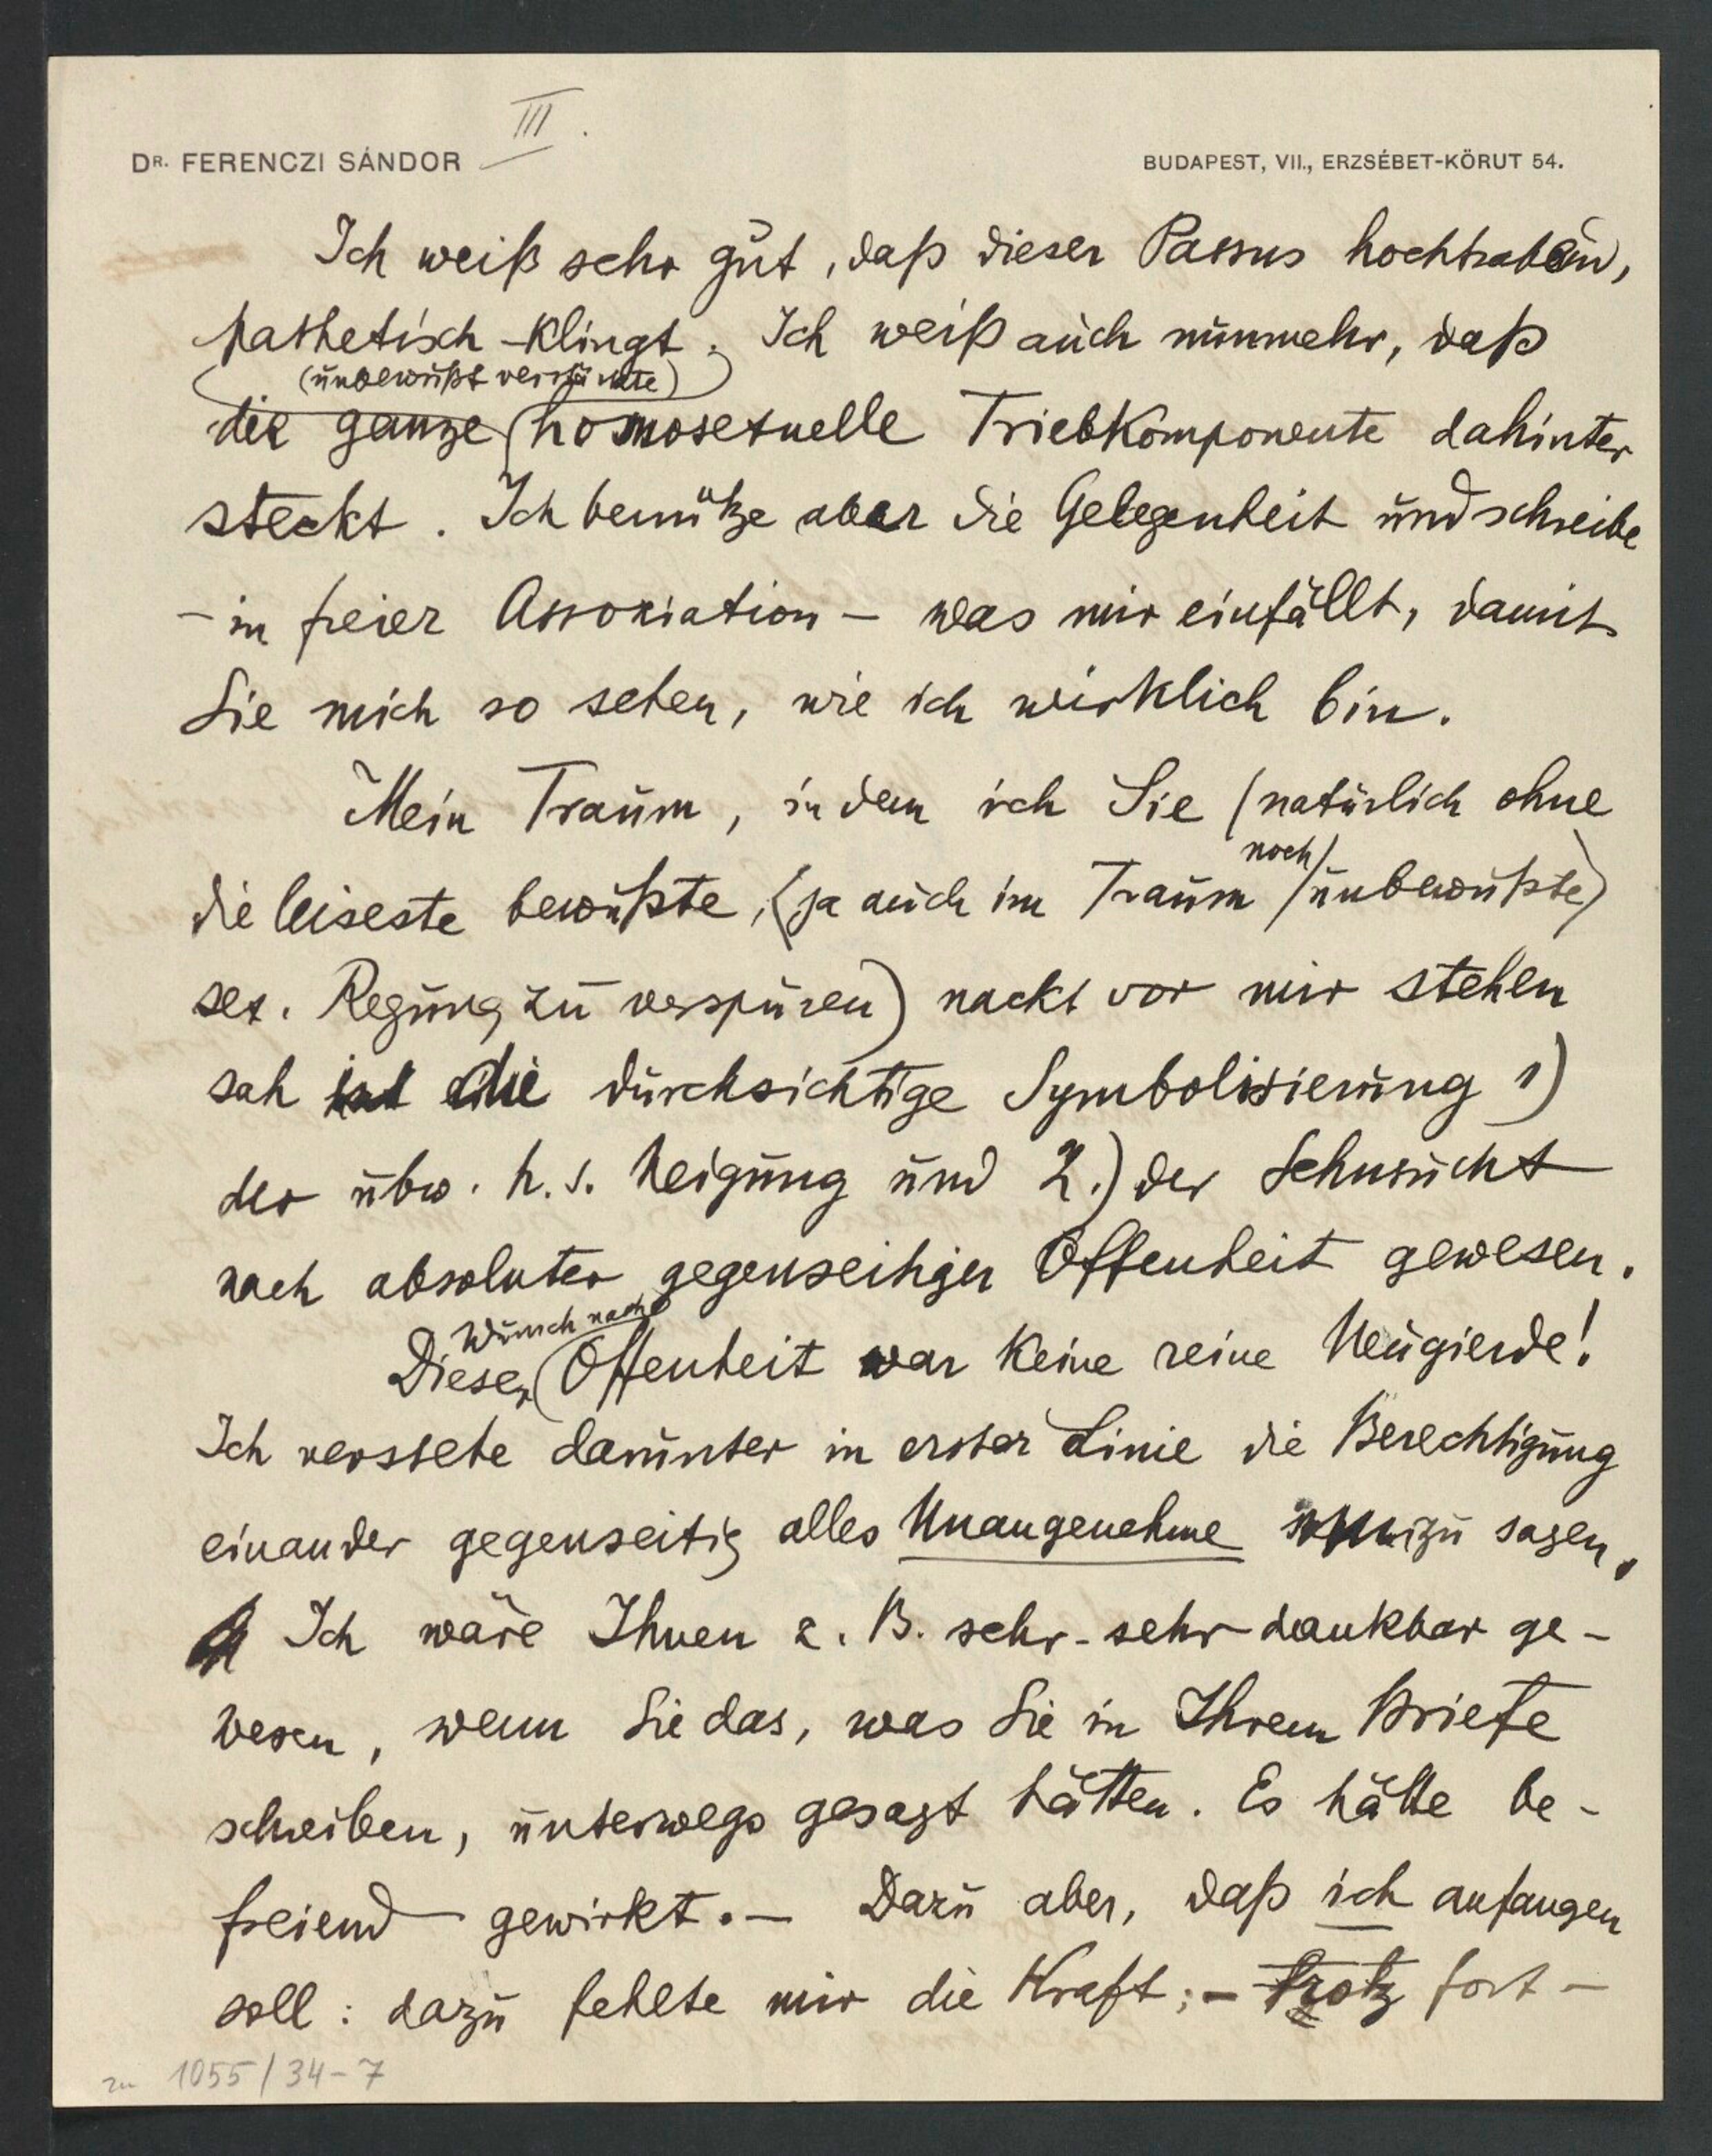 III.
DR. FERENCZI SÁNDOR
BUDAPEST, VII., ERZSÉBET-KÖRUT 54.
Ich weiß sehr gut, daß dieser Passus hochtrabend,
pathetisch klingt. Ich weiß auch nunmehr, daß
(unbewußt verstärkte)
die ganze homosexuelle Triebkomponente dahinter
steckt. Ich benütze aber die Gelegenheit und schreibe
– in freier Assoziation – was mir einfällt, damit
Sie mich so sehen, wie ich wirklich bin.
Mein Traum, in dem ich Sie (natürlich ohne
noch
die leiseste bewußte, (ja auch im Traum unbewußte)
sex. Regung zu verspüren) nackt vor mir stehen
sah ist die durchsichtige Symbolisierung 1)
der ubw. h. s. Neigung und 2.) der Sehnsucht
nach absoluter gegenseitiger Offenheit gewesen.
Wunsch nach
Dieser Offenheit war keine reine Neugierde!
Ich verstehe darunter in erster Linie die Berechtigung
einander gegenseitig alles Unangenehme zu sagen.
Ich wäre Ihnen z. B. sehr-sehr dankbar ge-
wesen, wenn Sie das, was Sie in Ihrem Briefe
schreiben, unterwegs gesagt hätten. Es hätte be-
freiend gewirkt. – Dazu aber, daß ich anfangen
soll: dazu fehlte mir die Kraft; – trotz fort-
zu 1055/34-7